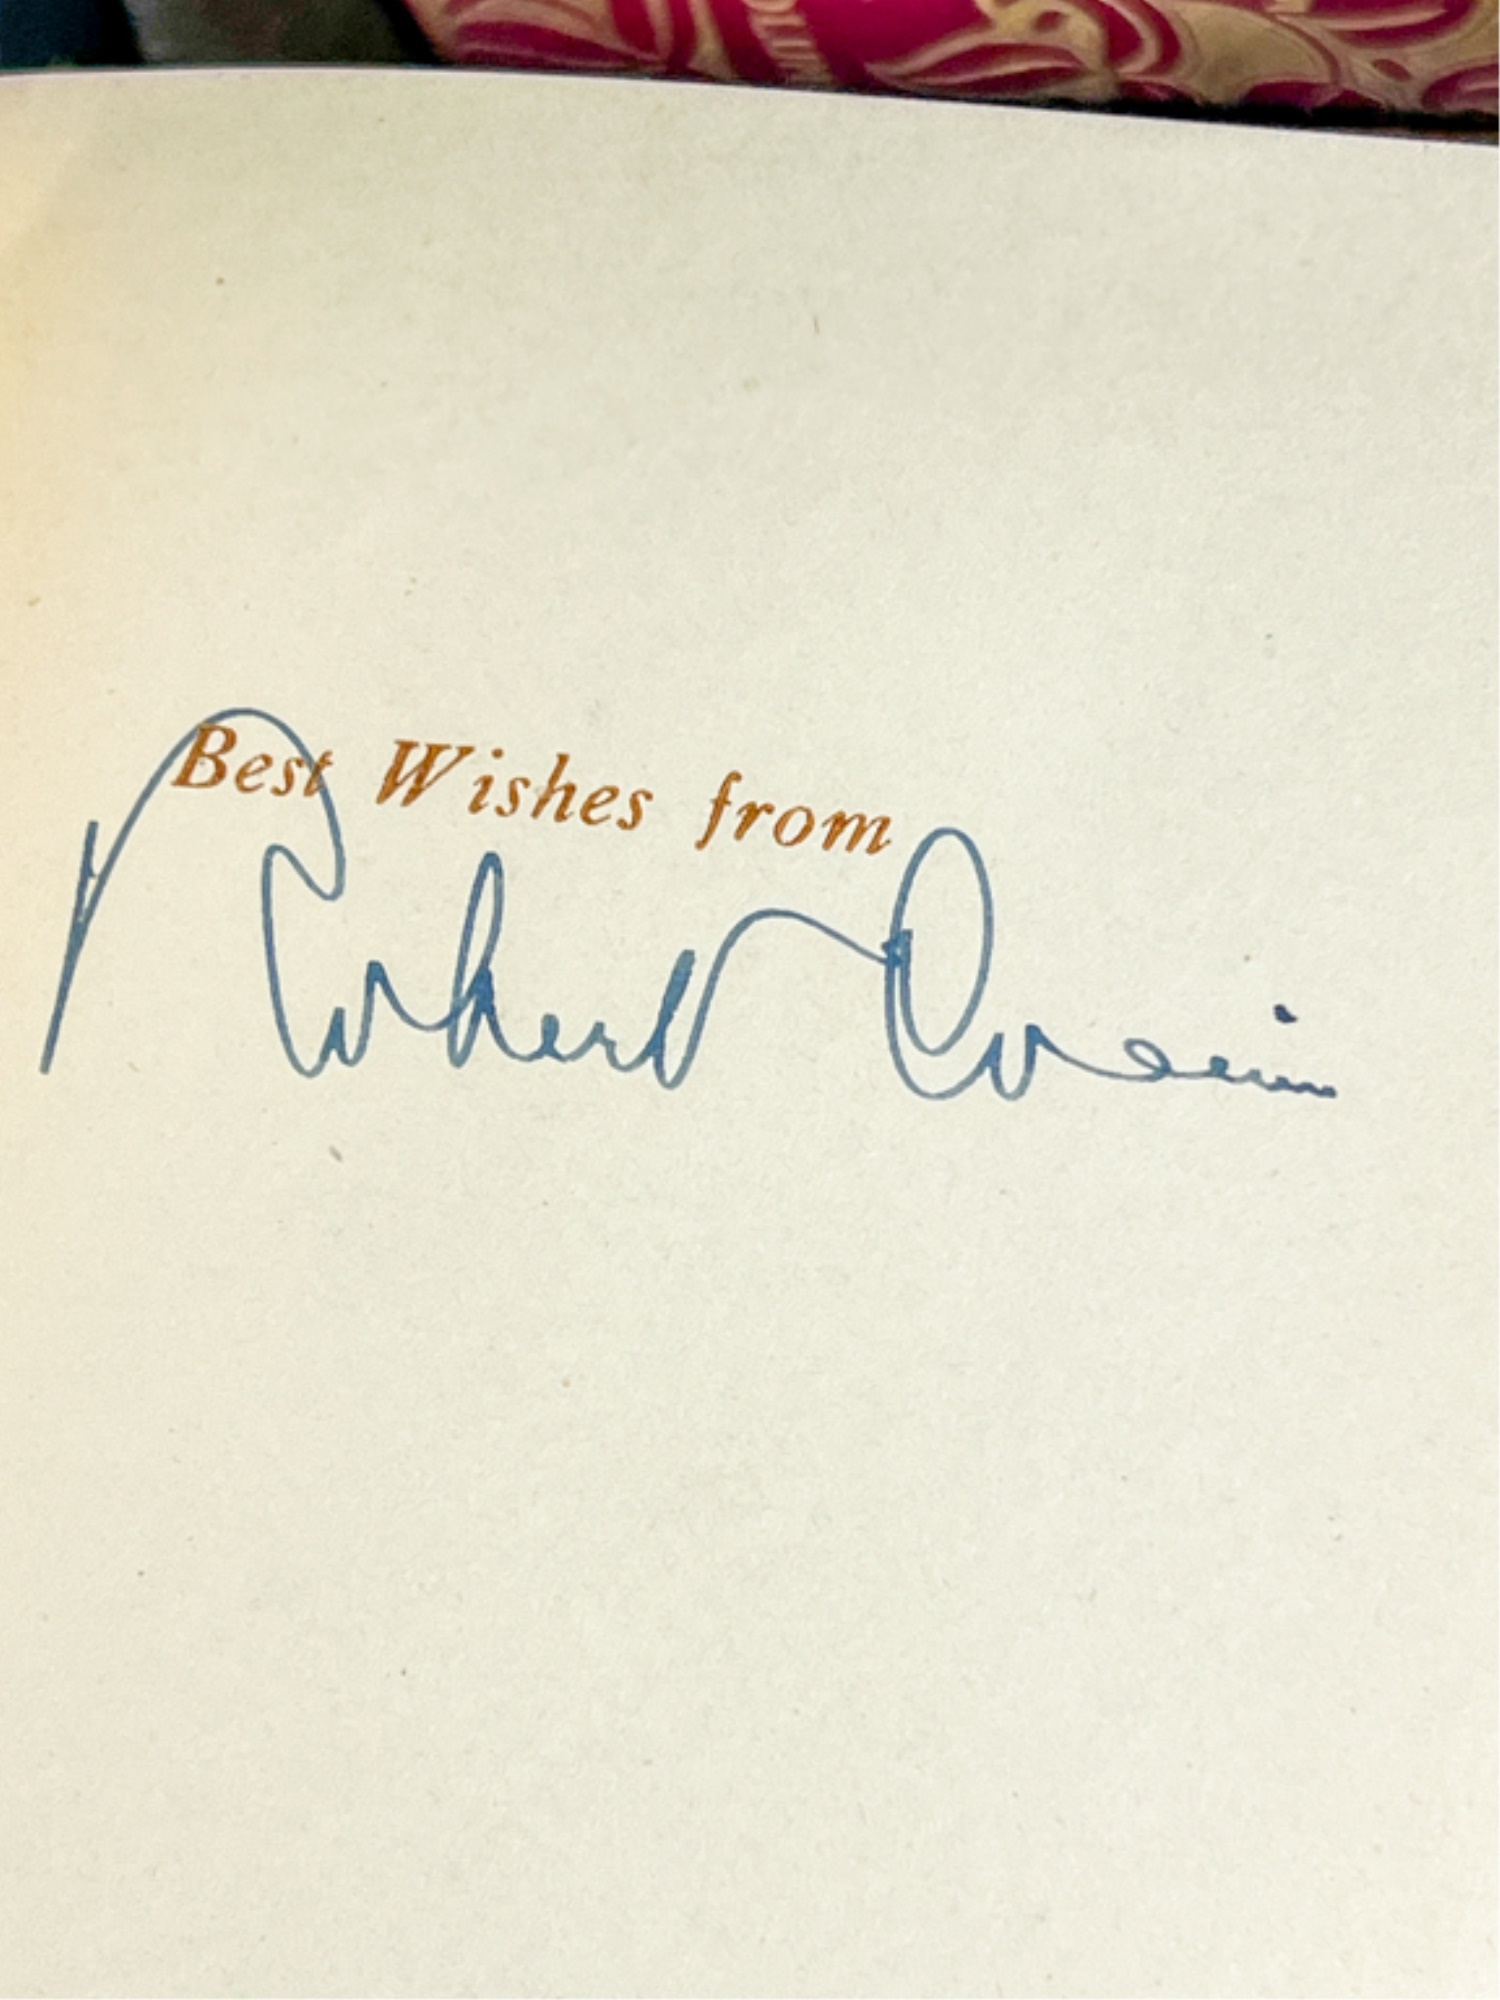 OLUM
Best Wishes from
Robert